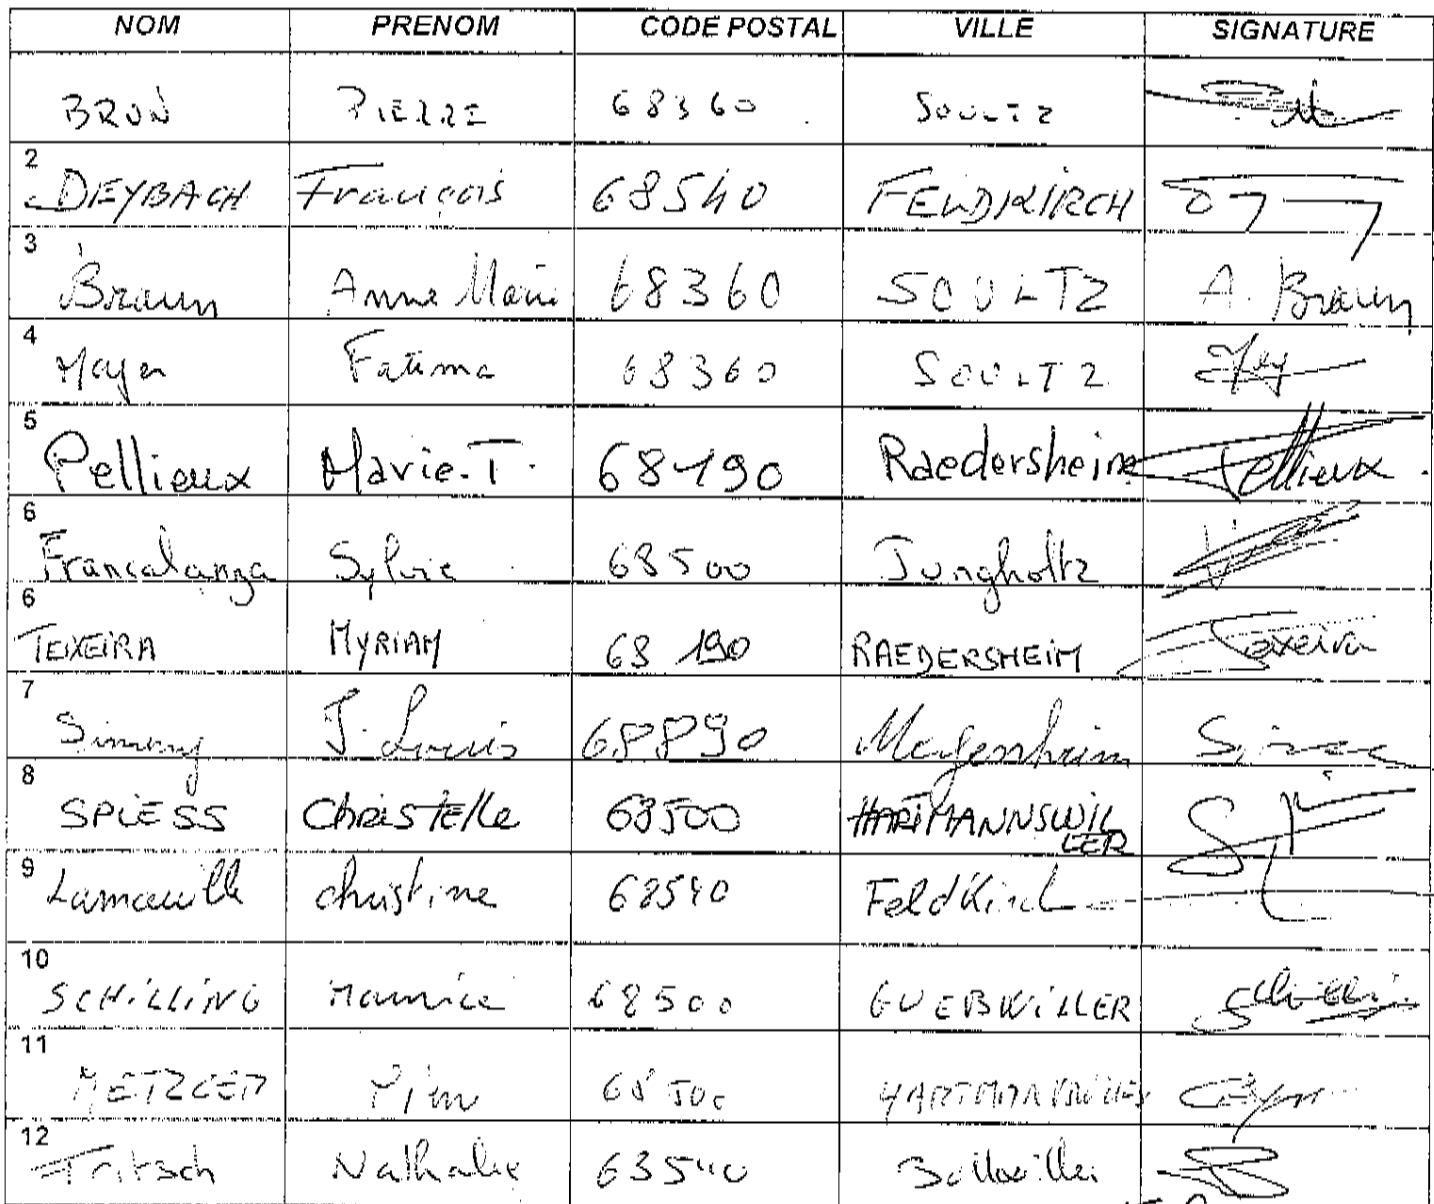 NOM PRENOM CODE POSTAL VILLE SIGNATURE
BRUN PIERRE 68360 SOULTZ
2 DEYBACH François 68540 FELDKIRCH
3 Braun Anne Marie 68360 SOULTZ A. Braun
4 Mayer Fatima 68360 SOULTZ
5 Pellieux Marie.T. 68190 Raedersheim Pellieux
6 Francalanza Sylvie 68500 Jungholtz
6 TEIXEIRA MYRIAM 68190 RAEDERSHEIM Teixeira
7 J. Louis 68890
8 SPIESS Christelle 68500 HARTMANNSWIL
LER
9 christine 68540 Feldkirch
10 SCHILLING Maurice 68500 GUEBWILLER
11 METZGER 68500
12 Fritsch Nathalie 68540 Bollwiller